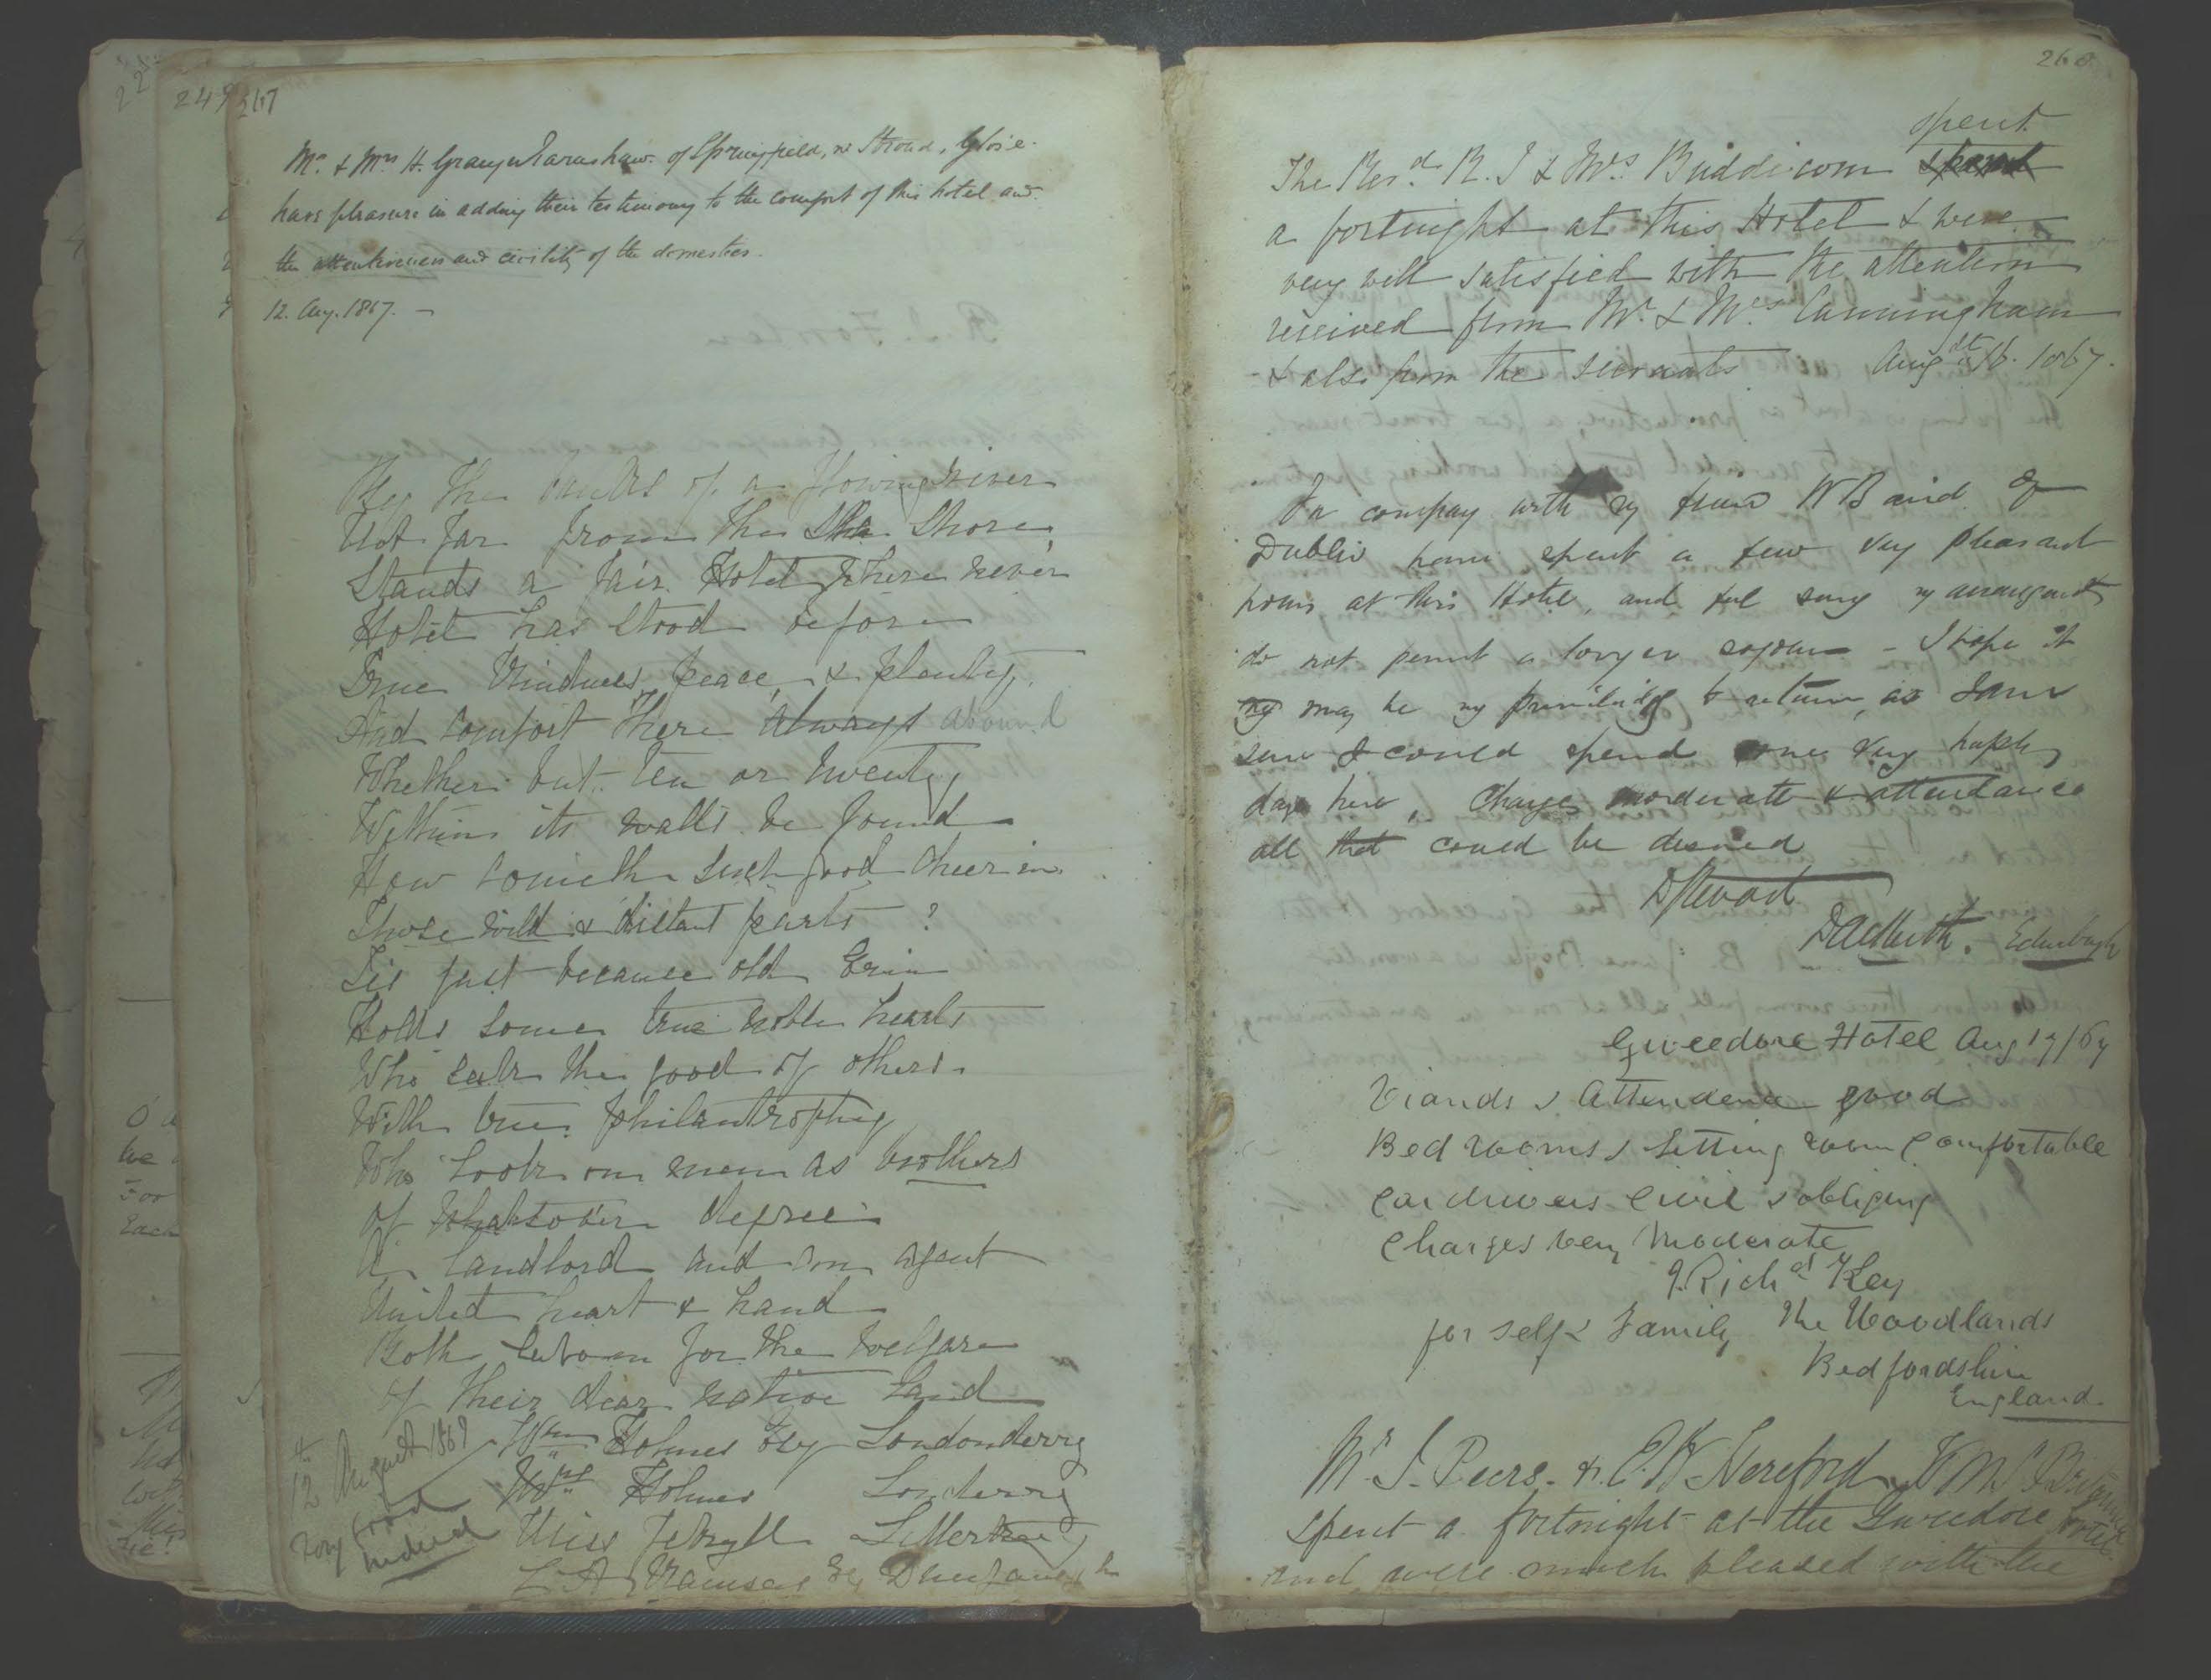 267
249
Mr. & Mrs H. Grainger of Springfield, nr Stroud, Glos'e.
have pleasure in adding their testimony to the comfort of this hotel and
the attentiveness and civility of the domestics.
12. Aug. 1867. —
By the banks of a flowing river
Not far from the Sea Shore
Stands a fair Hotel where never
Hotel has Stood before
True Kindness, peace, & plenty,
And comfort there always abound
Whether but ten or twenty,
Within its walls be found
How cometh such good cheer in
Those wild & distant parts?
Tis just because old Erin
Holds some true noble hearts
Who seek the good of others.
With true philanthrophy
Who look on men as brothers
Of whatsoe'er degree
A landlord and an agent
United heart & hand
Both labour for the welfare
of their dear native Land
Wm Holmes Esq Londonderry
Mrs Holmes Londonderry
Miss Jekyll Letterkenny
12th August 1867
Very good
indeed
268
The Revd. R. J & Mrs. Buddicom spent
a fortnight at this Hotel & were
very well satisfied with the attention
received from Mr. & Mrs Cunningham
& also from the servants Augst 16. 1867.
In company with my friend W Baird of
Dublin have spent a few very pleasant
hours at this Hotel, and feel sorry my arrangements
do not permit a longer sojourn - I hope it
may be my privilidge to return, as I am
sure I could spend some very happy
days here, Charges moderate & attendance
all that could be desired
D Stewart
Edinburgh
Gweedore Hotel Aug 17/67
Viands & Attendance good
Bed rooms & Sitting room Comfortable
Car drivers Civil & obliging
Charges very Moderate
J. Richd Key
for self & Family The Woodlands
Bedfordshire
England.
Mr. J. Peers. & E. W Hereford &
spent a fortnight at the Gweedore Hotel
and were much pleased with the